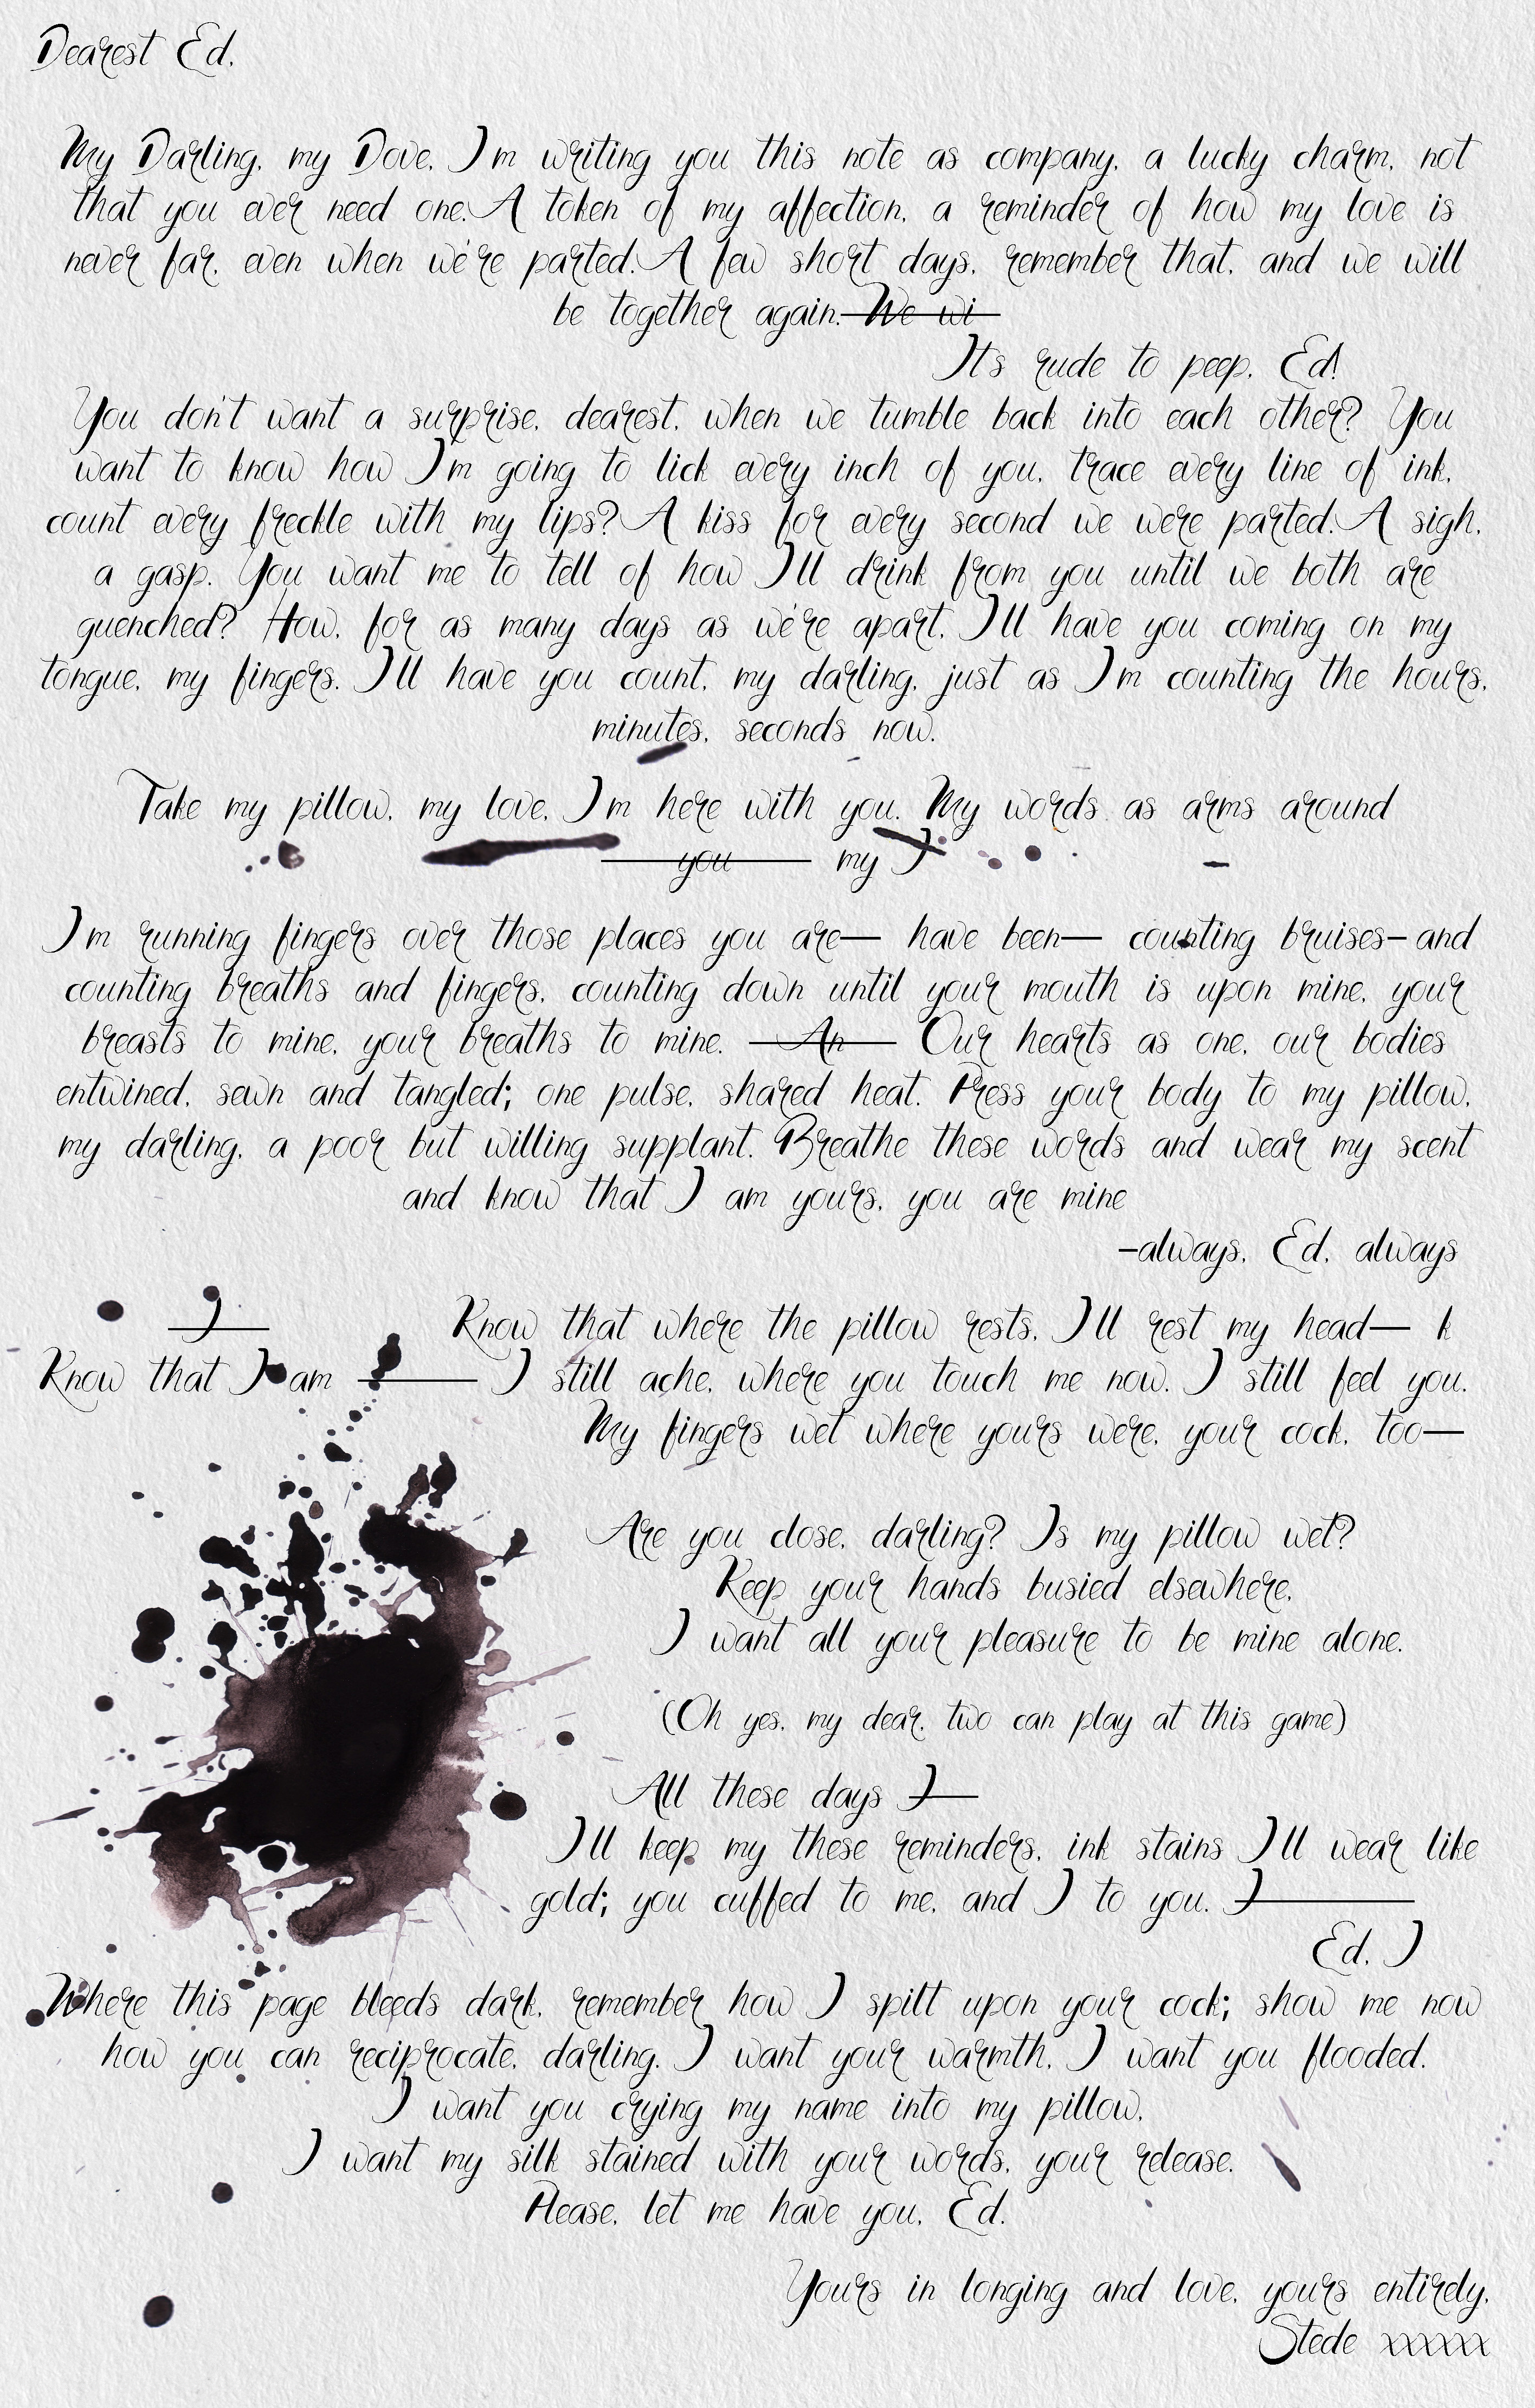 Dearest Ed,
My Darling, my Dove, I'm writing you this note as company, a lucky charm, not
that you ever need one. A token of my affection, a reminder of how my love is
never far, even when we're parted. A few short days, remember that, and we will
be together again. We wi
It's rude to peep, Ed!
You don't want a surprise, dearest, when we tumble back into each other? You
want to know how I'm going to lick every inch of you, trace every line of ink,
count every freckle with my lips? A kiss for every second we were parted. A sigh,
a gasp. You want me to tell of how I'll drink from you until we both are
quenched? How, for as many days as we're apart, I'll have you coming on my
tongue, my fingers. I'll have you count, my darling, just as I'm counting the hours,
minutes, seconds now.
Take my pillow, my love, I'm here with you. My words as arms around
you my I
I'm running fingers over those places you are— have been— counting bruises-and
counting breaths and fingers, counting down until your mouth is upon mine, your
breasts to mine, your breaths to mine. An Our hearts as one, our bodies
entwined, sewn and tangled; one pulse, shared heat. Press your body to my pillow,
my darling, a poor but willing supplant. Breathe these words and wear my scent
and know that I am yours, you are mine
-always, Ed, always
I Know that where the pillow rests, I'll rest my head— k
Know that I am I still ache, where you touch me now. I still feel you.
My fingers wet where yours were, your cock, too—
Are you close, darling? Is my pillow wet?
Keep your hands busied elsewhere,
I want all your pleasure to be mine alone.
(Oh yes, my dear, two can play at this game)
All these days I
I'll keep my these reminders, ink stains I'll wear like
gold; you cuffed to me, and I to you. I
Ed, I
Where this page bleeds dark, remember how I spilt upon your cock; show me now
how you can reciprocate, darling. I want your warmth, I want you flooded.
I want you crying my name into my pillow,
I want my silk stained with your words, your release.
Please, let me have you, Ed.
Yours in longing and love, yours entirely,
Stede xxxxxx